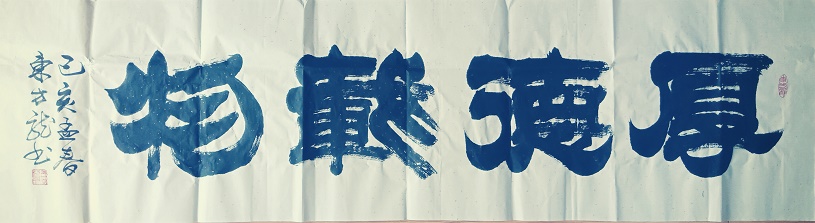 厚德載物
己亥孟春
東方龍书